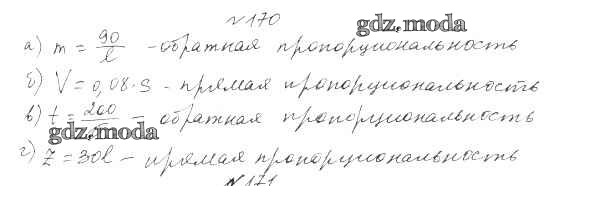 №170
gdz.moda
а) m = 90/l - обратная пропорциональность
б) V = 0,08·S - прямая пропорциональность
в) t = 200/ - обратная пропорциональность
gdz.moda
г) Z = 30l - прямая пропорциональность
№171